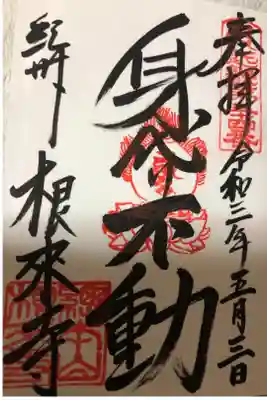 奉拝 令和三年五月三日
身代不動
紀州 根來寺